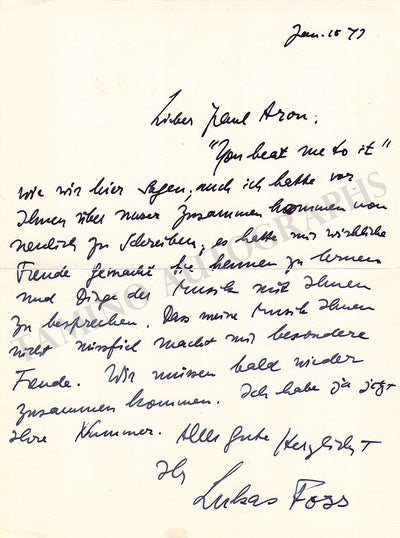 Jan. 15 77
Lieber Paul Aron,
"You beat me to it"
wie wir hier sagen, auch ich hatte vor
Ihnen über unser Zusammenkommen von
neulich zu schreiben, es hatte mir wirkliche
Freude gemacht Sie kennen zu lernen
und Dinge der Musik mit Ihnen
zu besprechen. Dass meine Musik Ihnen
nicht missfiel macht mir besondere
Freude. Wir müssen bald wieder
zusammen kommen. Ich habe ja jetzt
Ihre Nummer. Alles Gute, Herzlichst
Ihr
Lukas Foss
TAMINO AUTOGRAPHS